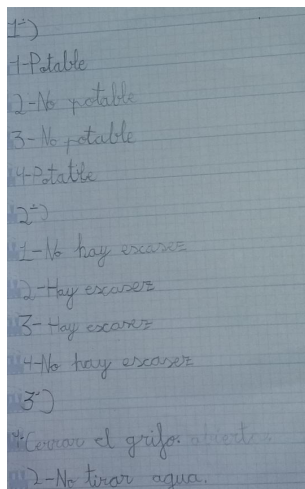 1º)
1-Potable
2-No potable
3-No potable
4-Potable
2º)
1-No hay escasez
2-Hay escasez
3-Hay escasez
4-No hay escasez
3º)
1-Cerrar el grifo.
2-No tirar agua.